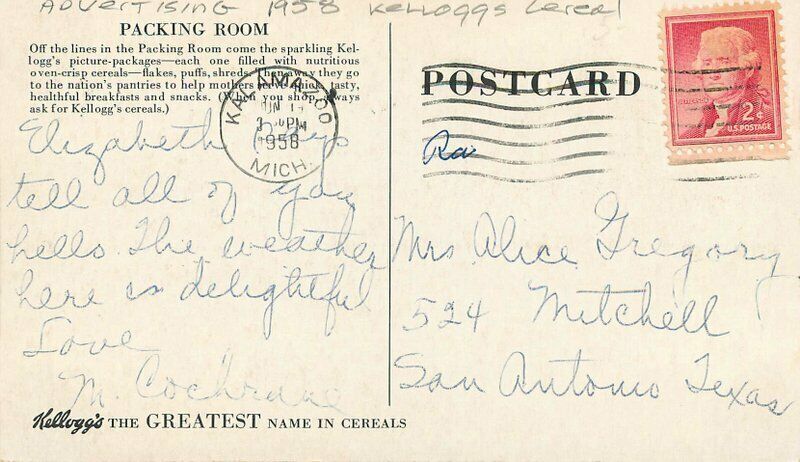 ADVERTISING 1958 Kelloggs Cereal
PACKING ROOM
Off the lines in the Packing Room come the sparkling Kel-
logg's picture-packages—each one filled with nutritious
oven-crisp cereals—flakes, puffs, shreds. Then away they go
to the nation's pantries to help mothers serve quick, tasty,
healthful breakfasts and snacks. (When you shop, always
ask for Kellogg's cereals.)
Elizabeth says
tell all of you
hello. The weather
here is delightful
Love
M. Cochrane
Kellogg's THE GREATEST NAME IN CEREALS
KALAMAZOO
PM
1958
MICH.
POSTCARD
2¢
U.S. POSTAGE
Mrs Alice Gregory
524 Mitchell
San Antonio Texas